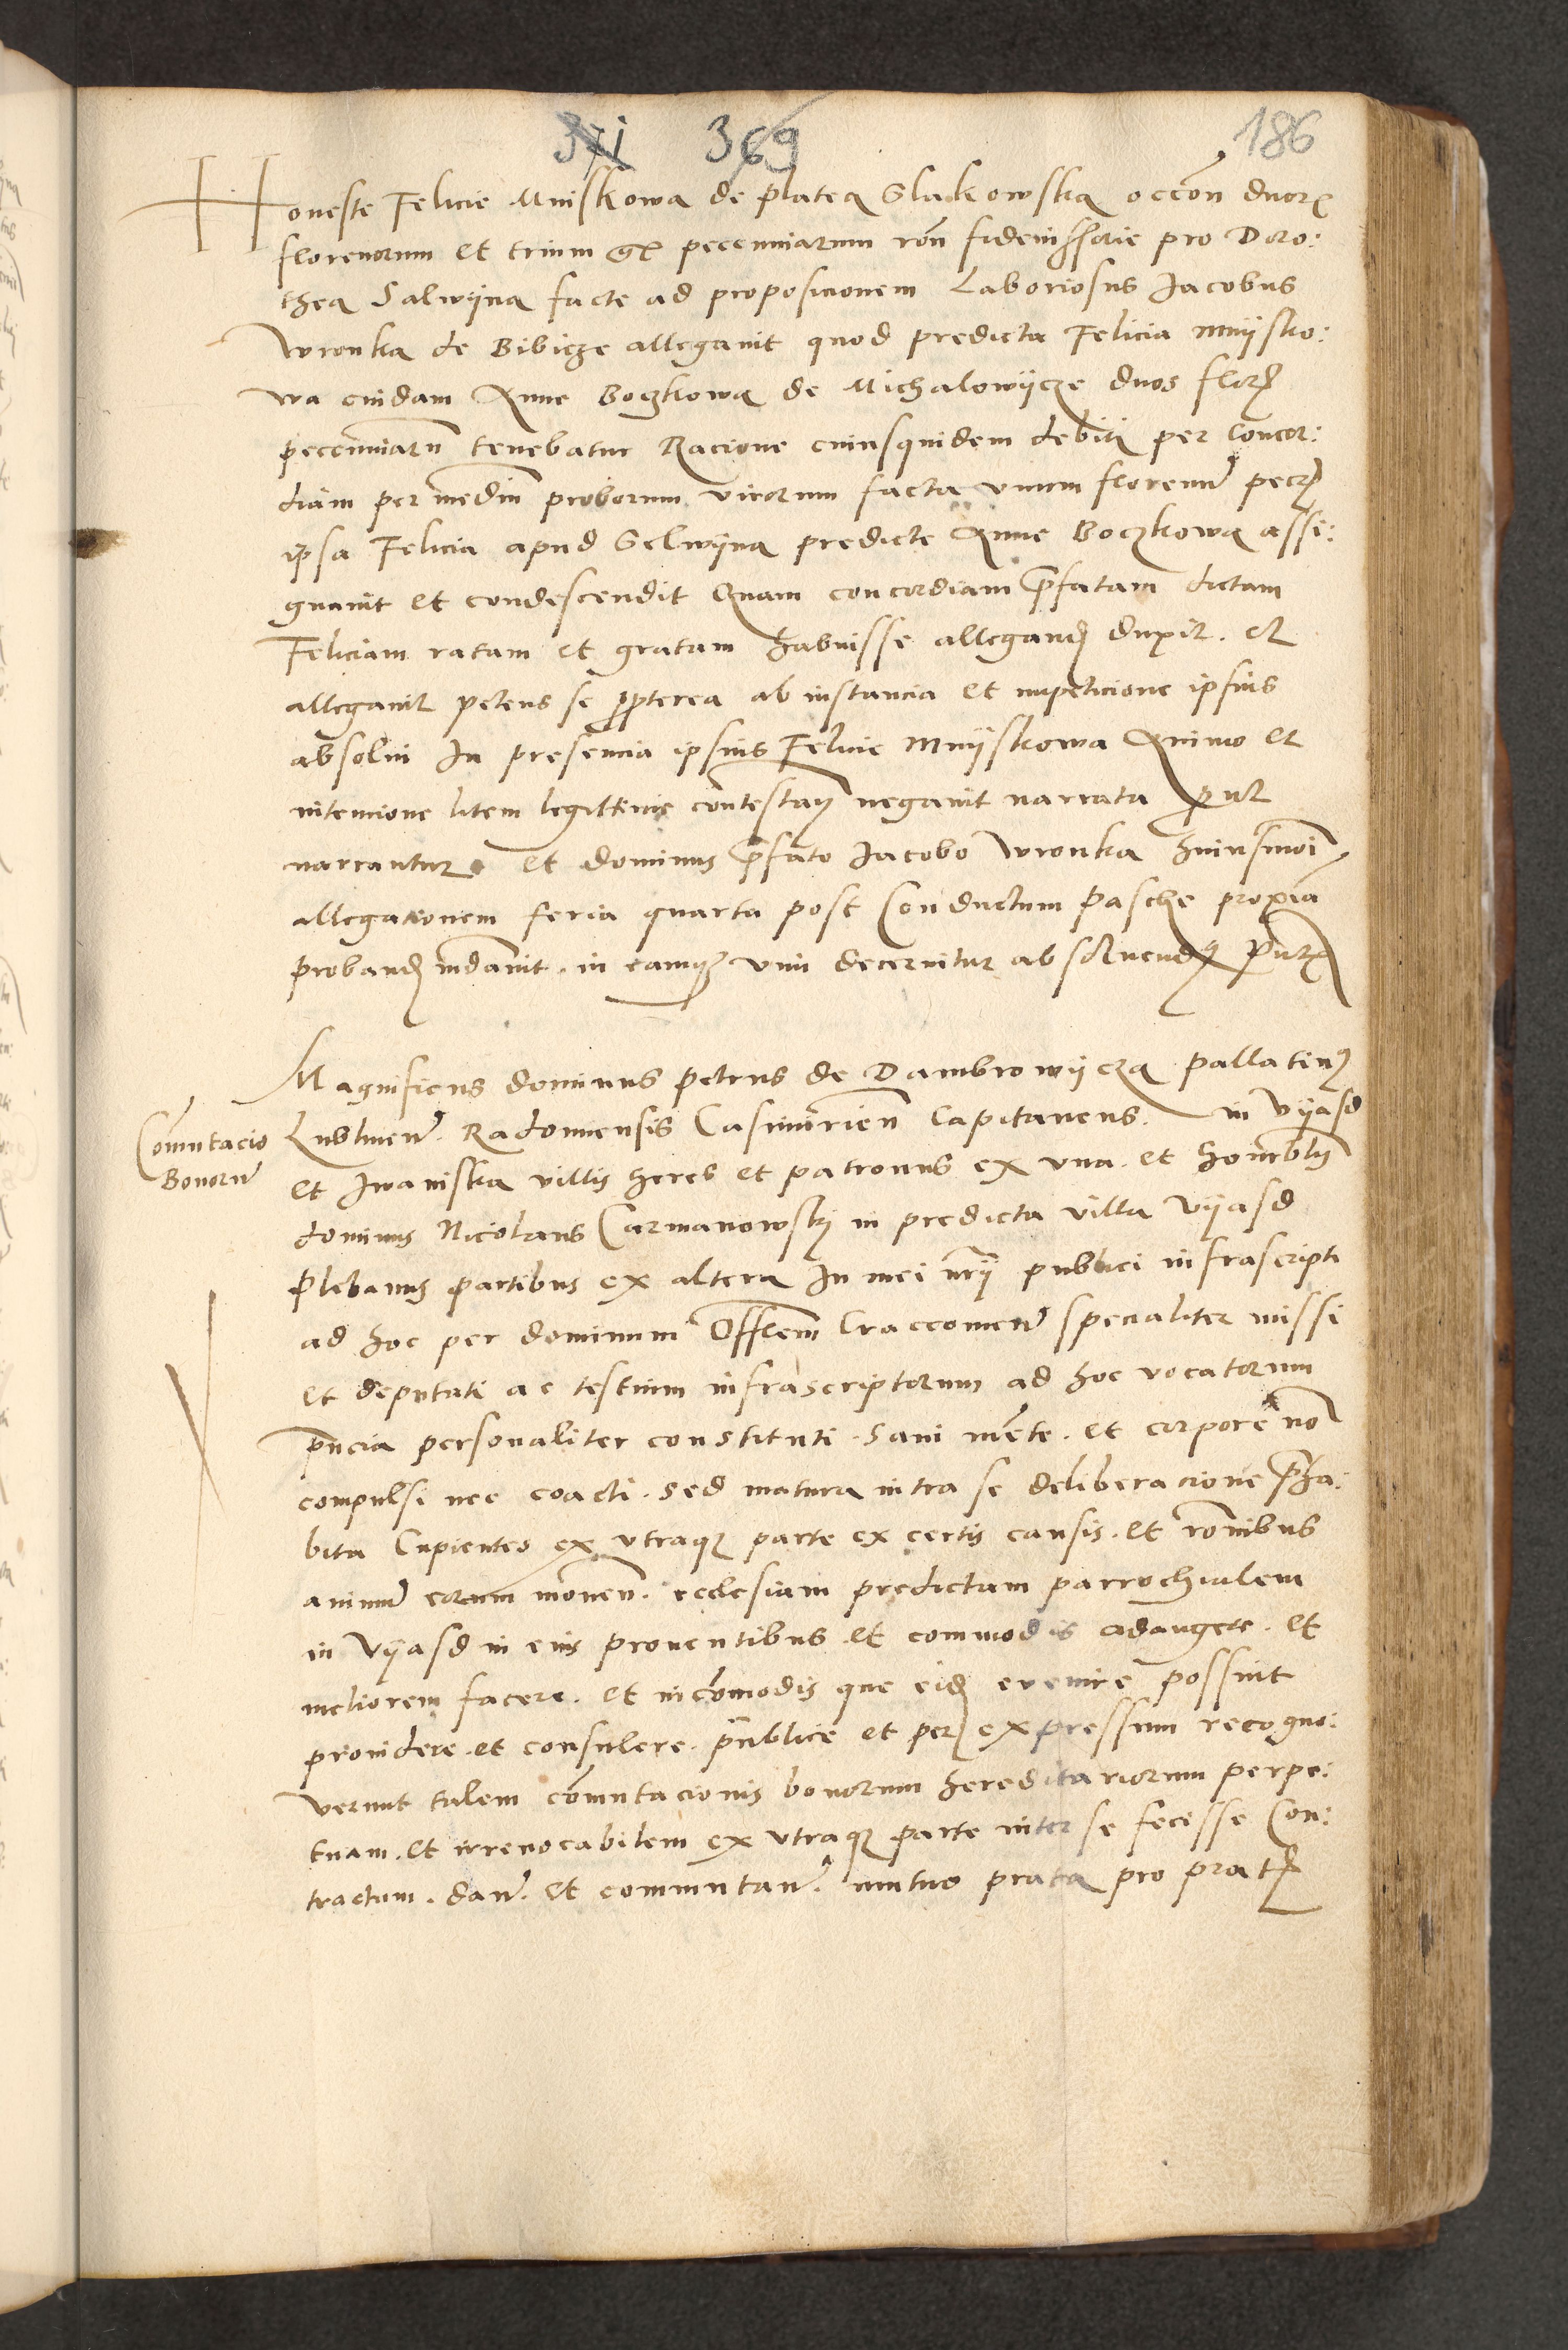 371 369 186
Honeste Felicie Mniskowa de platea Slakowska occōn duorꝫ
florenorum et trium gꝛ peccuniarum rōn fideiussorie pro Doro:
thea Salwyna facte ad proposicionem Laboriosus Jacobus
Wronka de Bibicze allegavit quod predicta Felicia Mnijsko:
wa cuidam Anne Boczkowa de Michalowijcze duos florꝫ
peccuniarū tenebatur Racione cuiusquidem debiti per Concor:
diam per mediū proborum virorum facta unum florenū pecꝫ
ipsa Felicia apud Selwijna predicte Anne Boczkowa assi:
gnauit et condescendit Quam concordiam p̄fatam dictam
Feliciam ratam et gratam habuisse allegandꝫ duxit. et
allegauit petens se ꝓpterea ab instancia et impeticione ipsius
absolui In presencia ipsius Felicie Mnijskowa Animo et
intencione litem legittime contestanꝫ negauit narrata ꝓut
narrantur et dominus p̄fato Jacobo Wronka huiusmōi
allegationem feria quarta post Conductum Pasche proxīa
probandꝫ indauit. in eamqꝫ vim decernitur absoluendꝫ p̄ntꝫ
Magnificus dominus Petrus de Dambrowijcza Pallatinꝰ
Comutacio
Bonorū
Lublineñ. Radomiensis Casimirieñ Capitaneus. in Vijasd
et Iwaniska villis heres et patronus ex una. et honorablis
dominus Nicolaus Carmanowskij in predicta villa Vijasd
Plebanus partibus ex altera In mei nrij publici infrascripti
ad hoc per dominum Offlem Craccouieñ specialiter missi
et deputati ac testium infrascriptorum ad hoc vocatorum
p̄ncia personaliter constituti. Sani mēte. et corpore nō
compulsi nec coacti. sed matura intra se deliberacione p̄ha:
bita Cupientes ex utraqꝫ parte ex certis causis. et rōnibus
animū eorum moueñ. ecclesiam predictam parrochialem
in Vijasd in eius prouentibus et commodis adaugere. et
meliorem facere. et incōmodis que eidꝫ euenire possint
prouidere. et consulere. publice et perꝫ expressum recogno:
uerunt talem cōmutacionis bonorum hereditariorum perpe:
tuam. et irreuocabilem ex utraqꝫ parte inter se fecisse Con:
tractum. dañ. et commutañ. mutuo prata pro pratꝫ